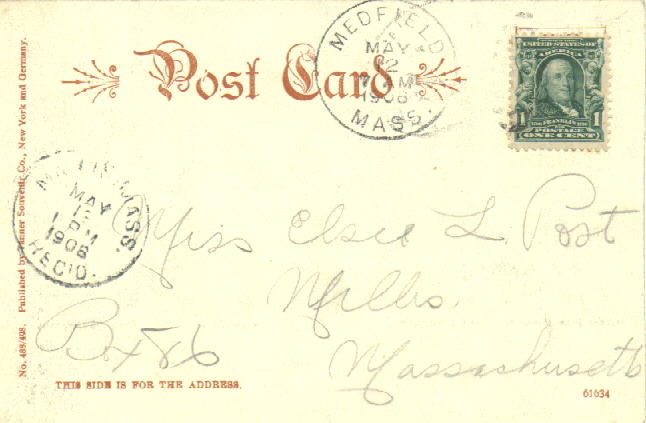 Post Card
MEDFIELD
MAY
12
7 AM
1908
MASS.
UNITED STATES OF
AMERICA
1 FRANKLIN 1
POSTAGE
ONE CENT
MASS.
MAY
1 PM
1908
REC'D.
Miss Elsie L. Post
Millis.
Box 586
Massachusetts
THIS SIDE IS FOR THE ADDRESS.
61634
No. 488/498. Published by Souvenir Co., New York and Germany.